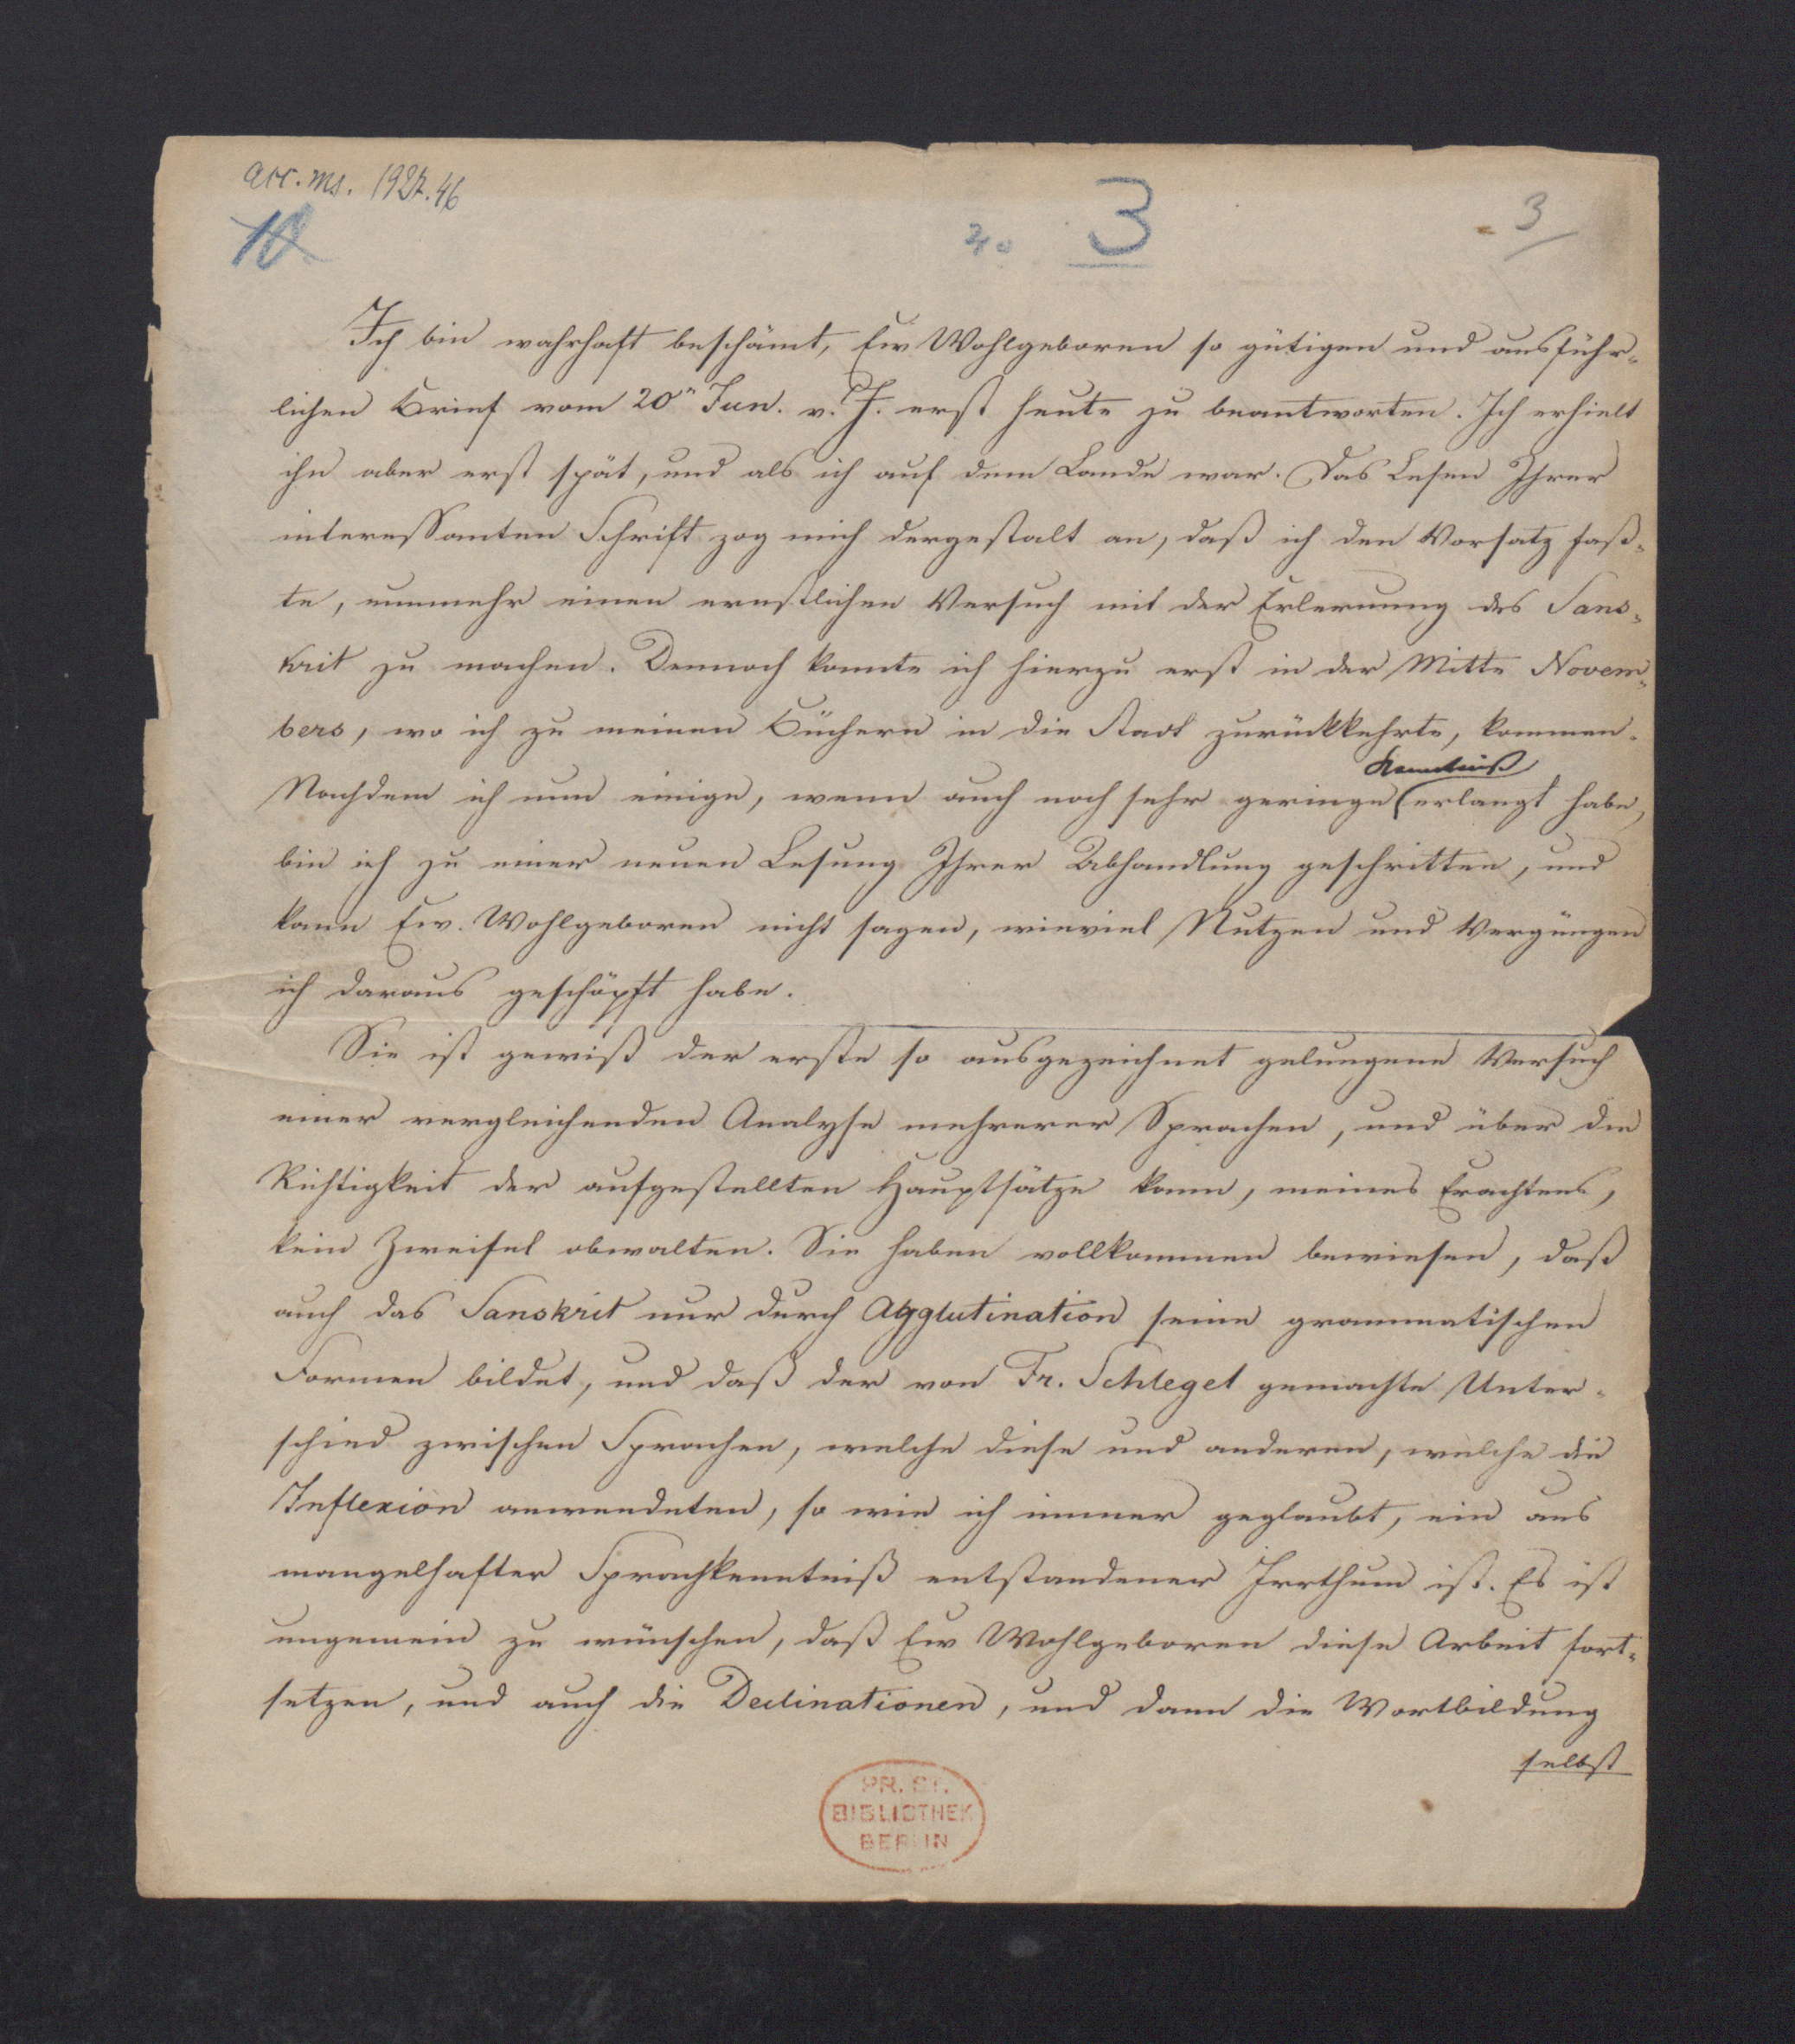 acc. ms. 1927.46
10
3
3
Ich bin wahrhaft beschämt, Ew Wohlgeboren so gütigen und ausführ-
lichen Brief vom 20n Jun. v. J. erst heute zu beantworten. Ich erhielt
ihn aber erst spät, und als ich auf dem Lande war. Das Lesen Ihrer
interessanten Schrift zog mich dergestalt an, daß ich den Vorsatz faß-
te, nunmehr einen ernstlichen Versuch mit der Erlernung des Sans-
krit zu machen. Dennoch konnte ich hierzu erst in der Mitte Novem-
bers, wo ich zu meinen Büchern in die Stadt zurückkehrte, kommen.
Kenntniß
Nachdem ich nun einige, wenn auch noch sehr geringe erlangt habe,
bin ich zu einer neuen Lesung Ihrer Abhandlung geschritten, und
kann Ew. Wohlgeboren nicht sagen, wieviel Nutzen und Vergüngen
ich daraus geschöpft habe.
Sie ist gewiß der erste so ausgezeichnet gelungene Versuch
einer vergleichenden Analyse mehrerer Sprachen, und über die
Richtigkeit der aufgestellten Hauptsätze kann, meines Erachtens,
kein Zweifel obwalten. Sie haben vollkommen bewiesen, daß
auch das Sanskrit nur durch Agglutination seine grammatischen
Formen bildet, und daß der von Fr. Schlegel gemachte Unter-
schied zwischen Sprachen, welche diese und anderen, welche die
Inflexion anwendeten, so wie ich immer geglaubt, ein aus
mangelhafter Sprachkenntniß entstandener Irrthum ist. Es ist
ungemein zu wünschen, daß Ew Wohlgeboren diese Arbeit fort-
setzen, und auch die Declinationen, und dann die Wortbildung
selbst
PR. ST.
BIBLIOTHEK
BERLIN